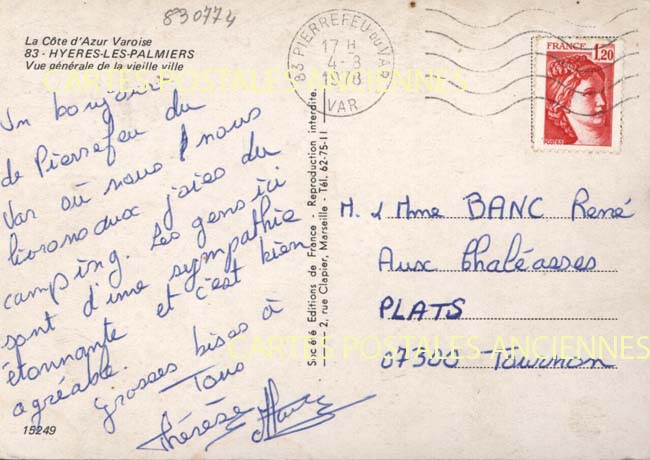 830774
La Côte d'Azur Varoise
83 - HYERES-LES-PALMIERS
Vue générale de la vieille ville
CARTES POSTALES ANCIENNES
Un bonjour
de Pierrefeu du
Var où nous nous
livrons aux joies du
camping. Les gens ici
sont d'une sympathie
étonnante et c'est bien
agréable.
Grosses bises à
Tous
Thérèse
15249
Société Editions de France - Reproduction interdite.
2, rue Clapier, Marseille - Tél. 62-75-11
83 PIERREFEU-DU-VAR
17 H
4-8
1978
VAR
FRANCE 1,20
M. & Mme BANC René
Aux Chaléasses
PLATS
07300 Tournon
CARTES POSTALES ANCIENNES